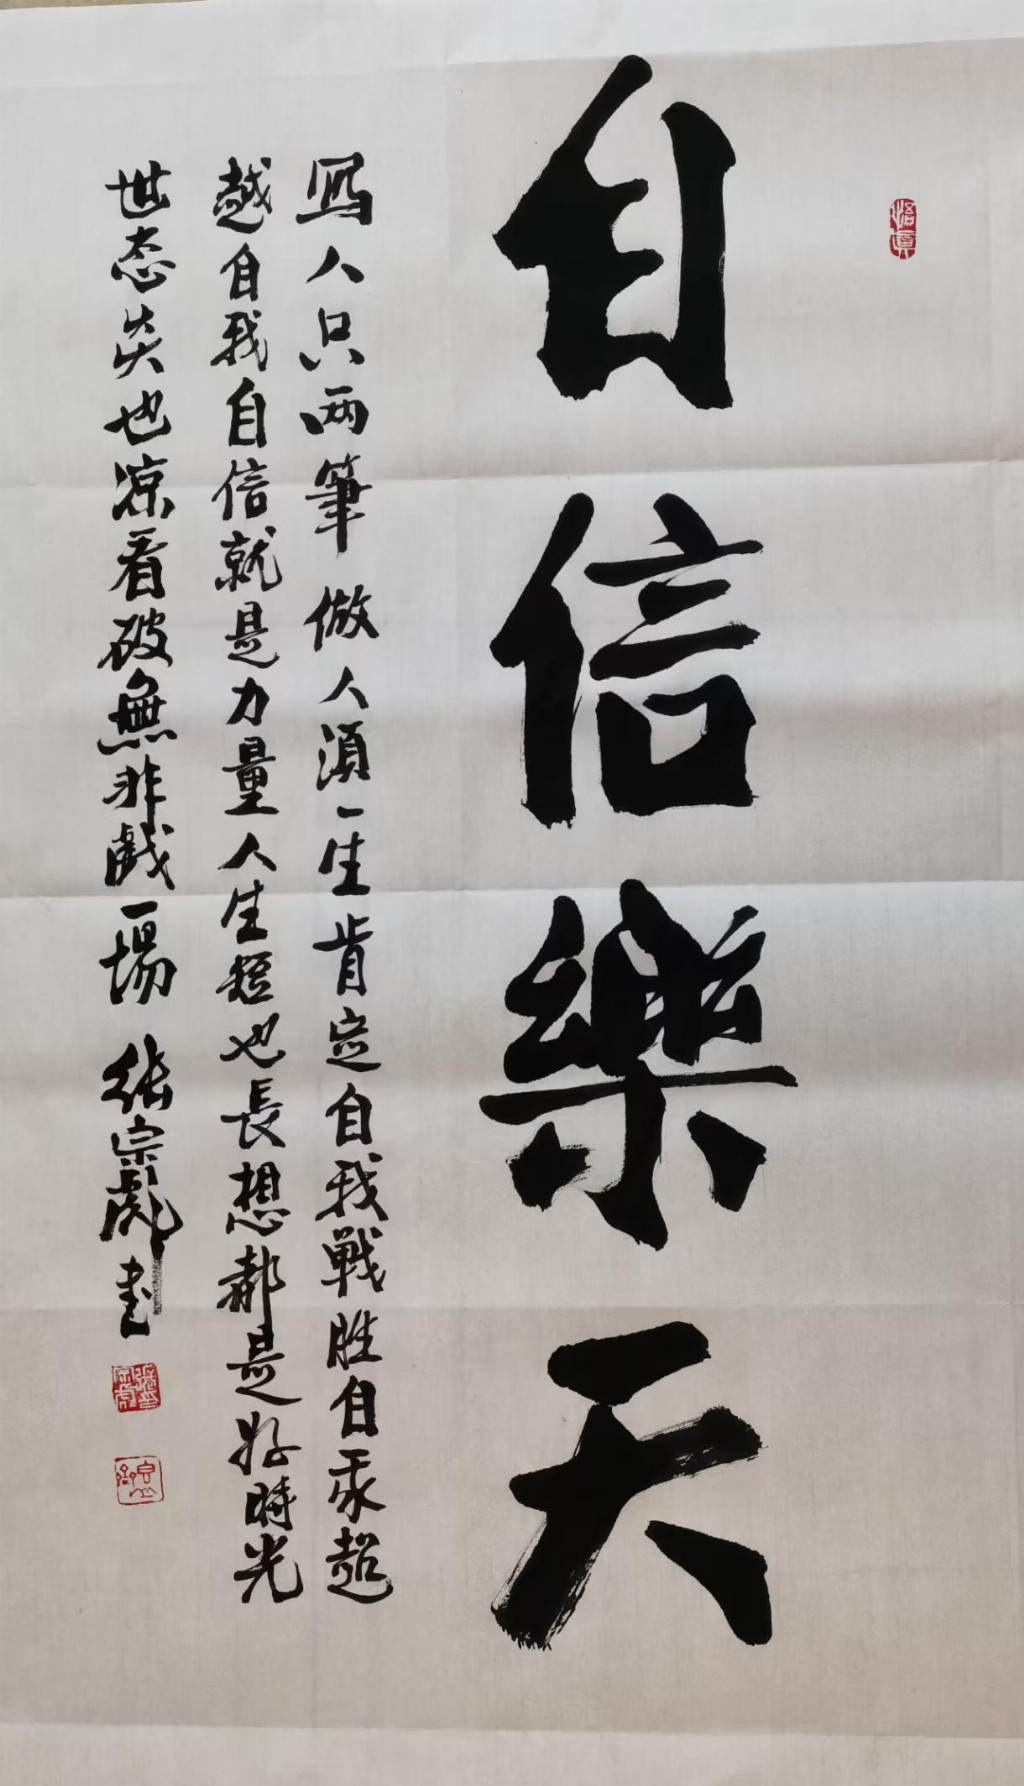 自信樂天
寫人只两筆做人須一生肯定自我戰胜自我超
越自我自信就是力量人生短也長想都是好時光
世态炎也凉看破無非戲一場 张宗彪书